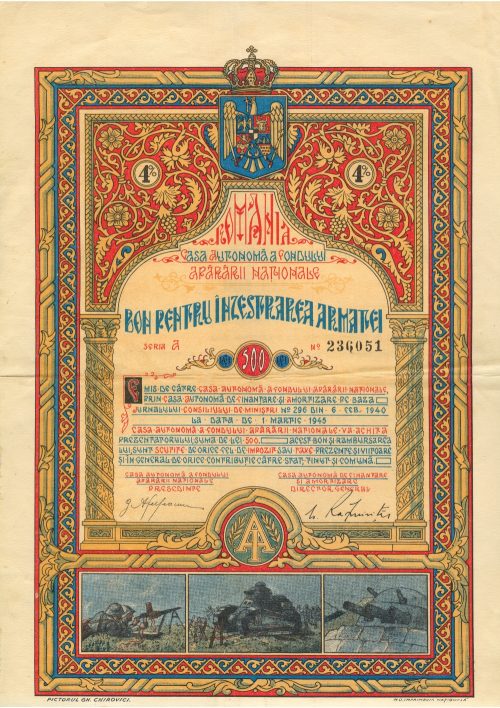 4%
4%
ROMÂNIA
CASA AUTONOMĂ A FONDULUI
APĂRĂRII NAȚIONALE
BON PENTRU ÎNZESTRAREA ARMATEI
SERIA A
500
No 236051
EMIS DE CĂTRE CASA AUTONOMĂ A FONDULUI APĂRĂRII NAȚIONALE,
PRIN CASA AUTONOMĂ DE FINANȚARE ȘI AMORTIZARE PE BAZA
JURNALULUI CONSILIULUI DE MINIȘTRI No 296 DIN 6 FEB. 1940
LA DATA DE 1 MARTIE 1945
CASA AUTONOMĂ A FONDULUI APĂRĂRII NAȚIONALE VA ACHITA
PREZENTATORULUI SUMA DE LEI 500. ACEST BON ȘI RAMBURSAREA
LUI, SUNT SCUTITE DE ORICE FEL DE IMPOZIT SAU TAXE PREZENTE ȘI VIITOARE
ȘI ÎN GENERAL DE ORICE CONTRIBUȚIE CĂTRE STAT, ȚINUT ȘI COMUNĂ.
CASA AUTONOMĂ A FONDULUI
APĂRĂRII NAȚIONALE
PREȘEDINTE
CASA AUTONOMĂ DE FINANȚARE
ȘI AMORTIZARE
DIRECTOR GENERAL
PICTORUL GH. CHIROVICI.
M.O. IMPRIMERIA NAȚIONALĂ